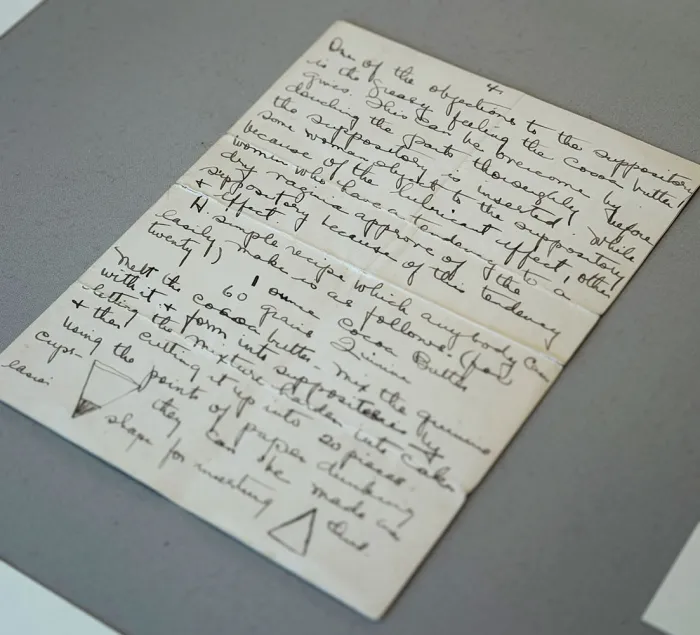 4
One of the objections to the suppository
is the greasy feeling the cocoa butter
gives. This can be overcome by
douching the parts thoroughly before
the suppository is inserted. While
some women object to the suppository
because of the lubricant effect, other
women who have a tendency to a
dry vagina approve of the
suppository because of this tendency
+ effect
A simple recipe which anybody can
easily make is as follows: (for
twenty)
1 ounce Cocoa Butter
60 grains Quinine
Melt the cocoa butter - mix the quinine
with it + form into suppositories by
letting the mixture harden into cakes
+ then cutting it up into 20 pieces.
Using the points of paper drinking
cups they can be made in
shape for inserting thus.
easier